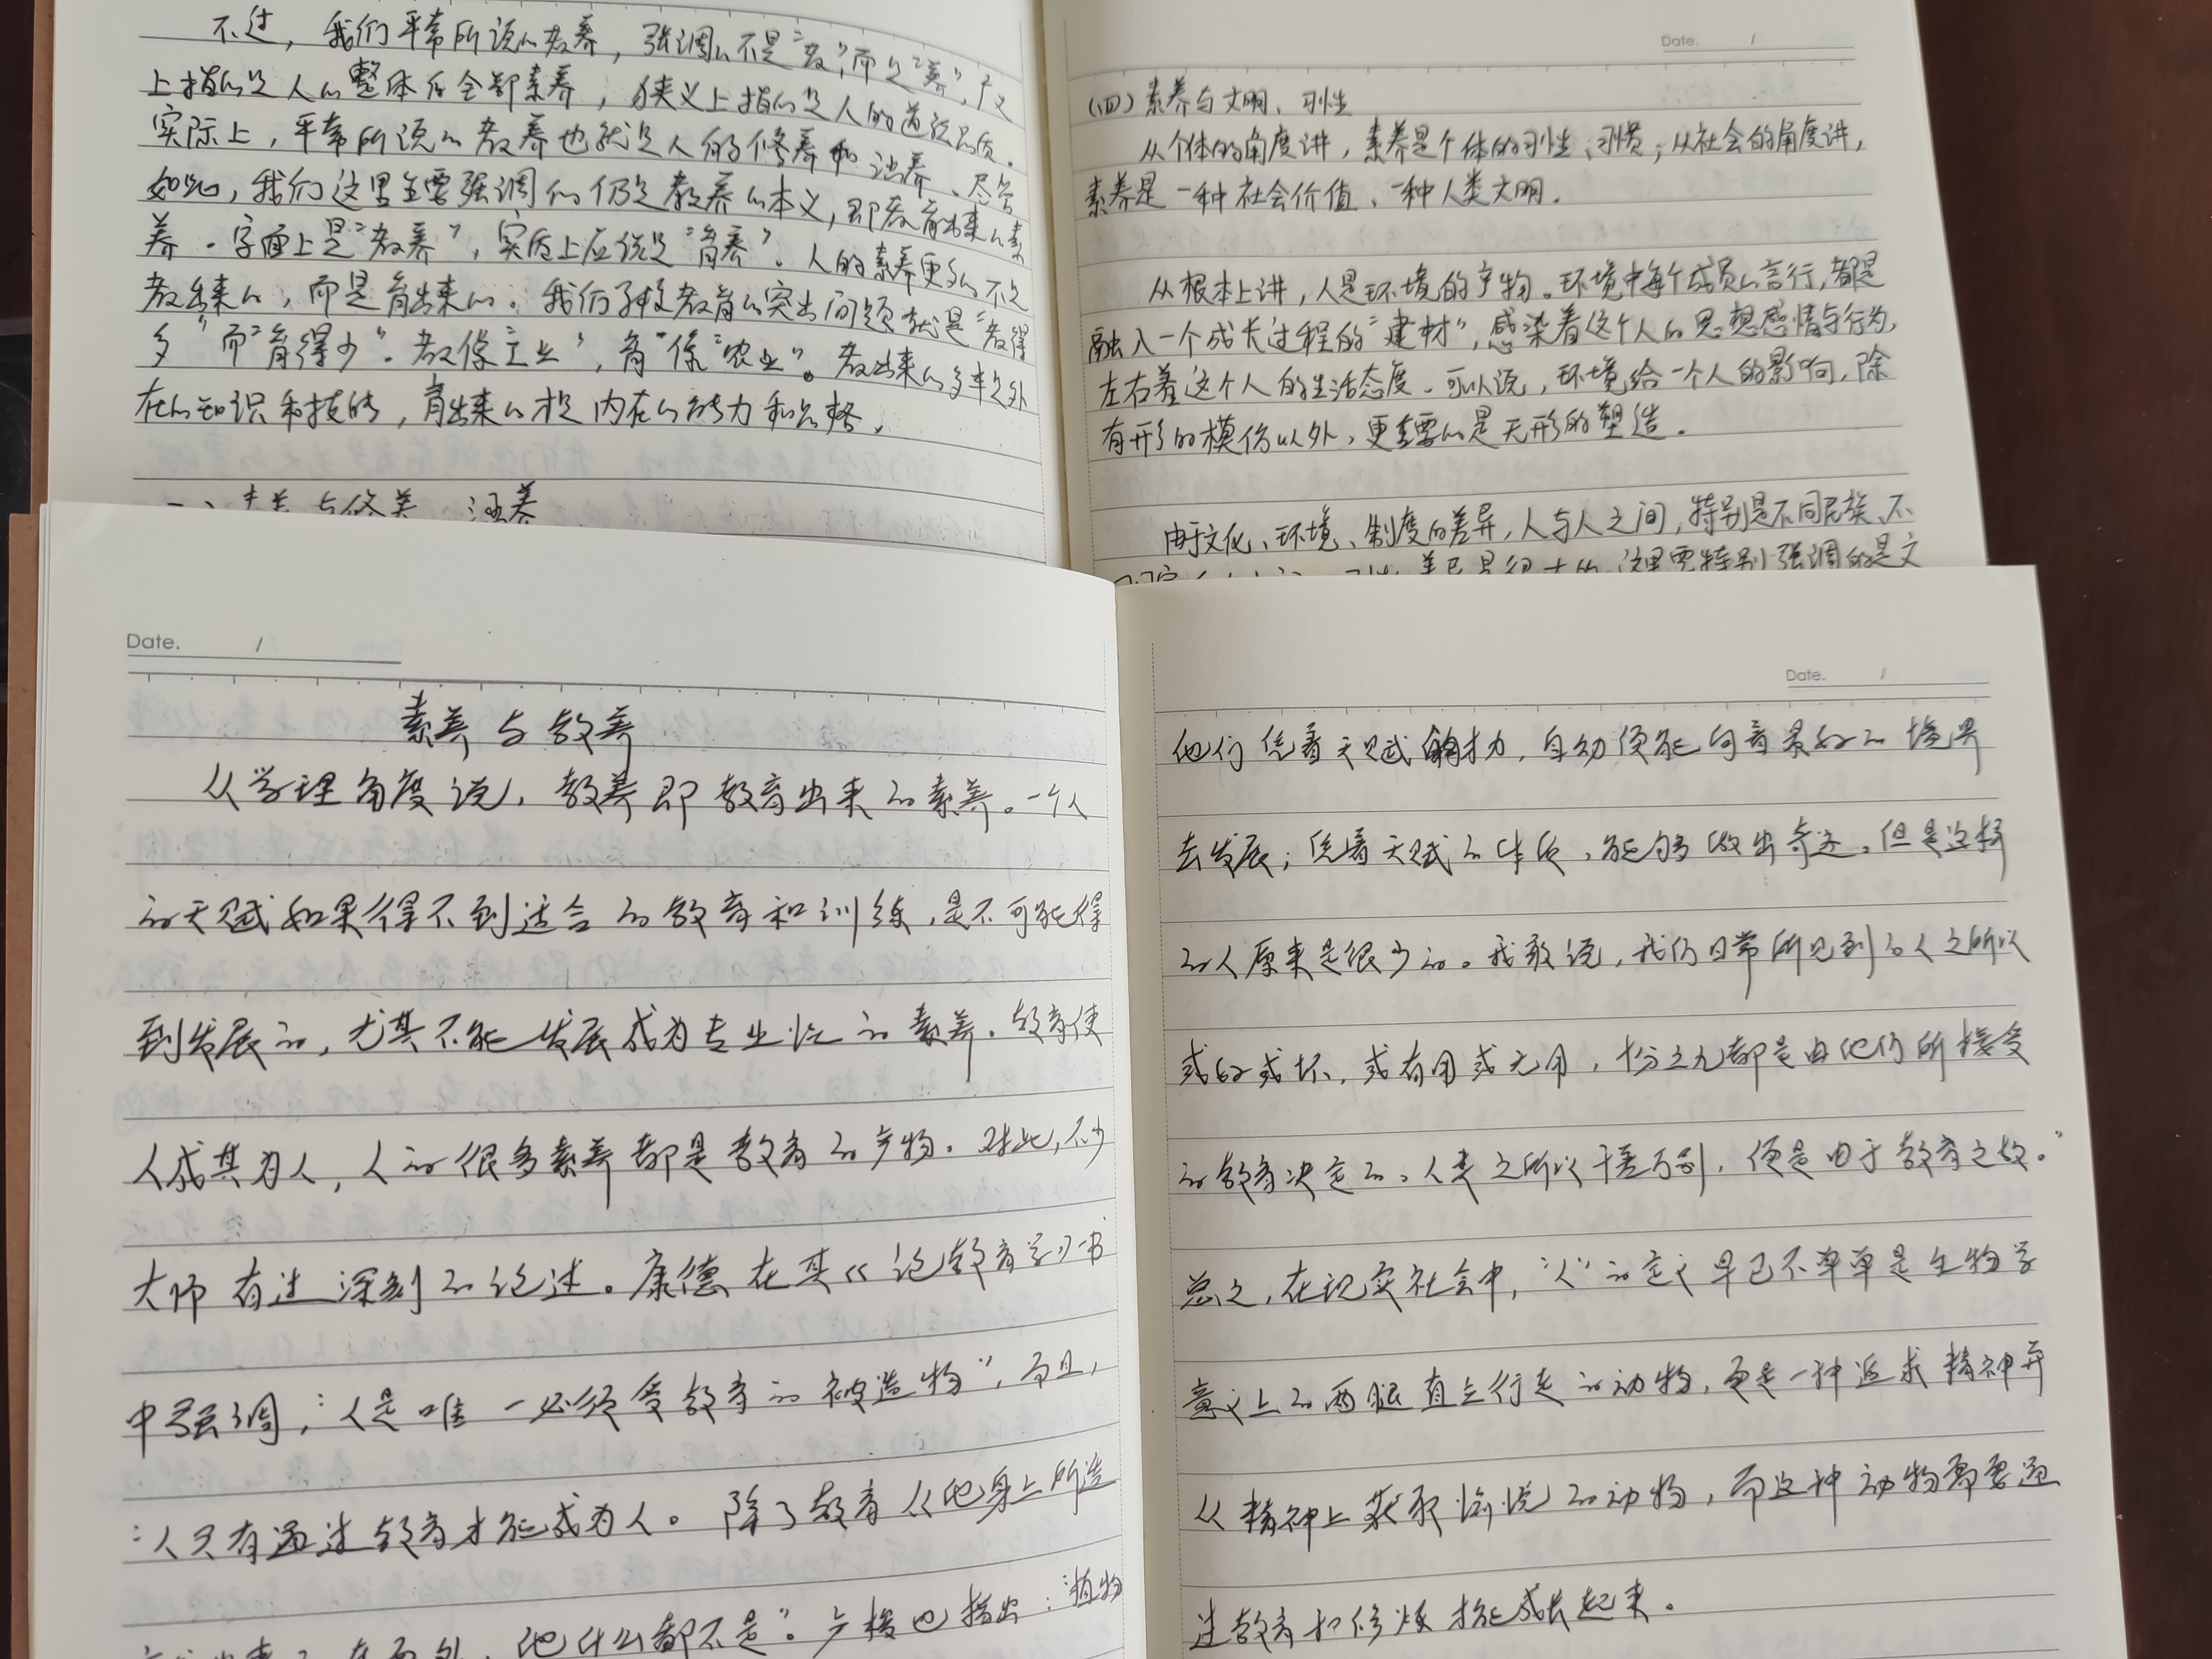 不过，我们平常所说的教养，强调的不是“教”，而是“养”，广义
上指的是人的整体的全部素养；狭义上指的是人的道德品质。
实际上，平常所说的教养也就是人的修养和涵养。尽管
如此，我们这里主要强调的仍是教养的本义，即教育出来的素
养。字面上是“教养”，实质上应说是“育养”。人的素养更多的不是
教出来的，而是育出来的。我们学校教育的突出问题就是“教得
多”而“育得少”。教像“工业”，育像“农业”。教出来的多半是外
在的知识和技能，育出来的才是内在的能力和品格。
素养与修养、涵养
Date. /
(四) 素养与文明、习性
从个体的角度讲，素养是个体的习性、习惯；从社会的角度讲，
素养是一种社会价值、一种人类文明。
从根本上讲，人是环境的产物。环境中每个成员的言行，都是
融入一个成长过程的“建材”，感染着这个人的思想感情与行为，
左右着这个人的生活态度。可以说，环境给一个人的影响，除
有形的模仿以外，更重要的是无形的塑造。
由于文化、环境、制度的差异，人与人之间，特别是不同民族、不
这里要特别强调的是文
Date. /
素养与教养
从学理角度说，教养即教育出来的素养。一个人
的天赋如果得不到适合的教育和训练，是不可能得
到发展的，尤其不能发展成为专业性的素养。教育使
人成其为人，人的很多素养都是教育的产物。对此，不少
大师有过深刻的论述。康德在其《论教育学》一书
中强调，“人是唯一必须受教育的被造物”，而且，
“人只有通过教育才能成为人。除了教育从他身上所造
他什么都不是”。卢梭也指出：“植物
Date. /
他们凭着天赋的才力，自动便能向着最好的境界
去发展；凭着天赋的体质，能够做出奇迹。但是这样
的人原来是很少的。我敢说，我们日常所见到的人之所以
或好或坏，或有用或无用，十分之九都是由他们所接受
的教育决定的。人类之所以千差万别，便是由于教育之故。”
总之，在现实社会中，“人”的定义早已不单单是生物学
意义上的两腿直立行走的动物，更是一种追求精神并
从精神上获取愉悦的动物，而这种动物需要通
过教育和修炼才能成长起来。